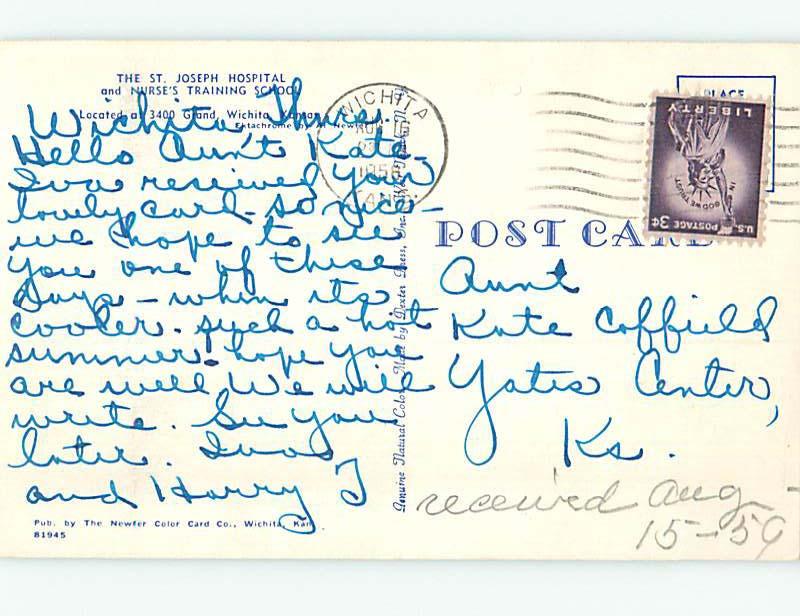 THE ST. JOSEPH HOSPITAL
and NURSE'S TRAINING SCHOOL
Located at 3400 Grand, Wichita, Kansas
Ektachrome by
Wichita, Thurs.
Hello Aunt Kate -
Iva received your
lovely card - so nice -
we hope to see
you one of these
days - when its
cooler. such a hot
summer. hope you
are well We will
write. See you
later. Iva
and Harry J
Pub. by The Newfer Color Card Co., Wichita, Kan.
81945
Genuine Natural Color Made by Dexter Press, Inc.
WICHITA
KANS
PLACE
LIBERTY
IN GOD WE TRUST
U.S. POSTAGE 3¢
POST CARD
Aunt
Kate Coffield
Yates Center,
Ks.
received Aug
15-59